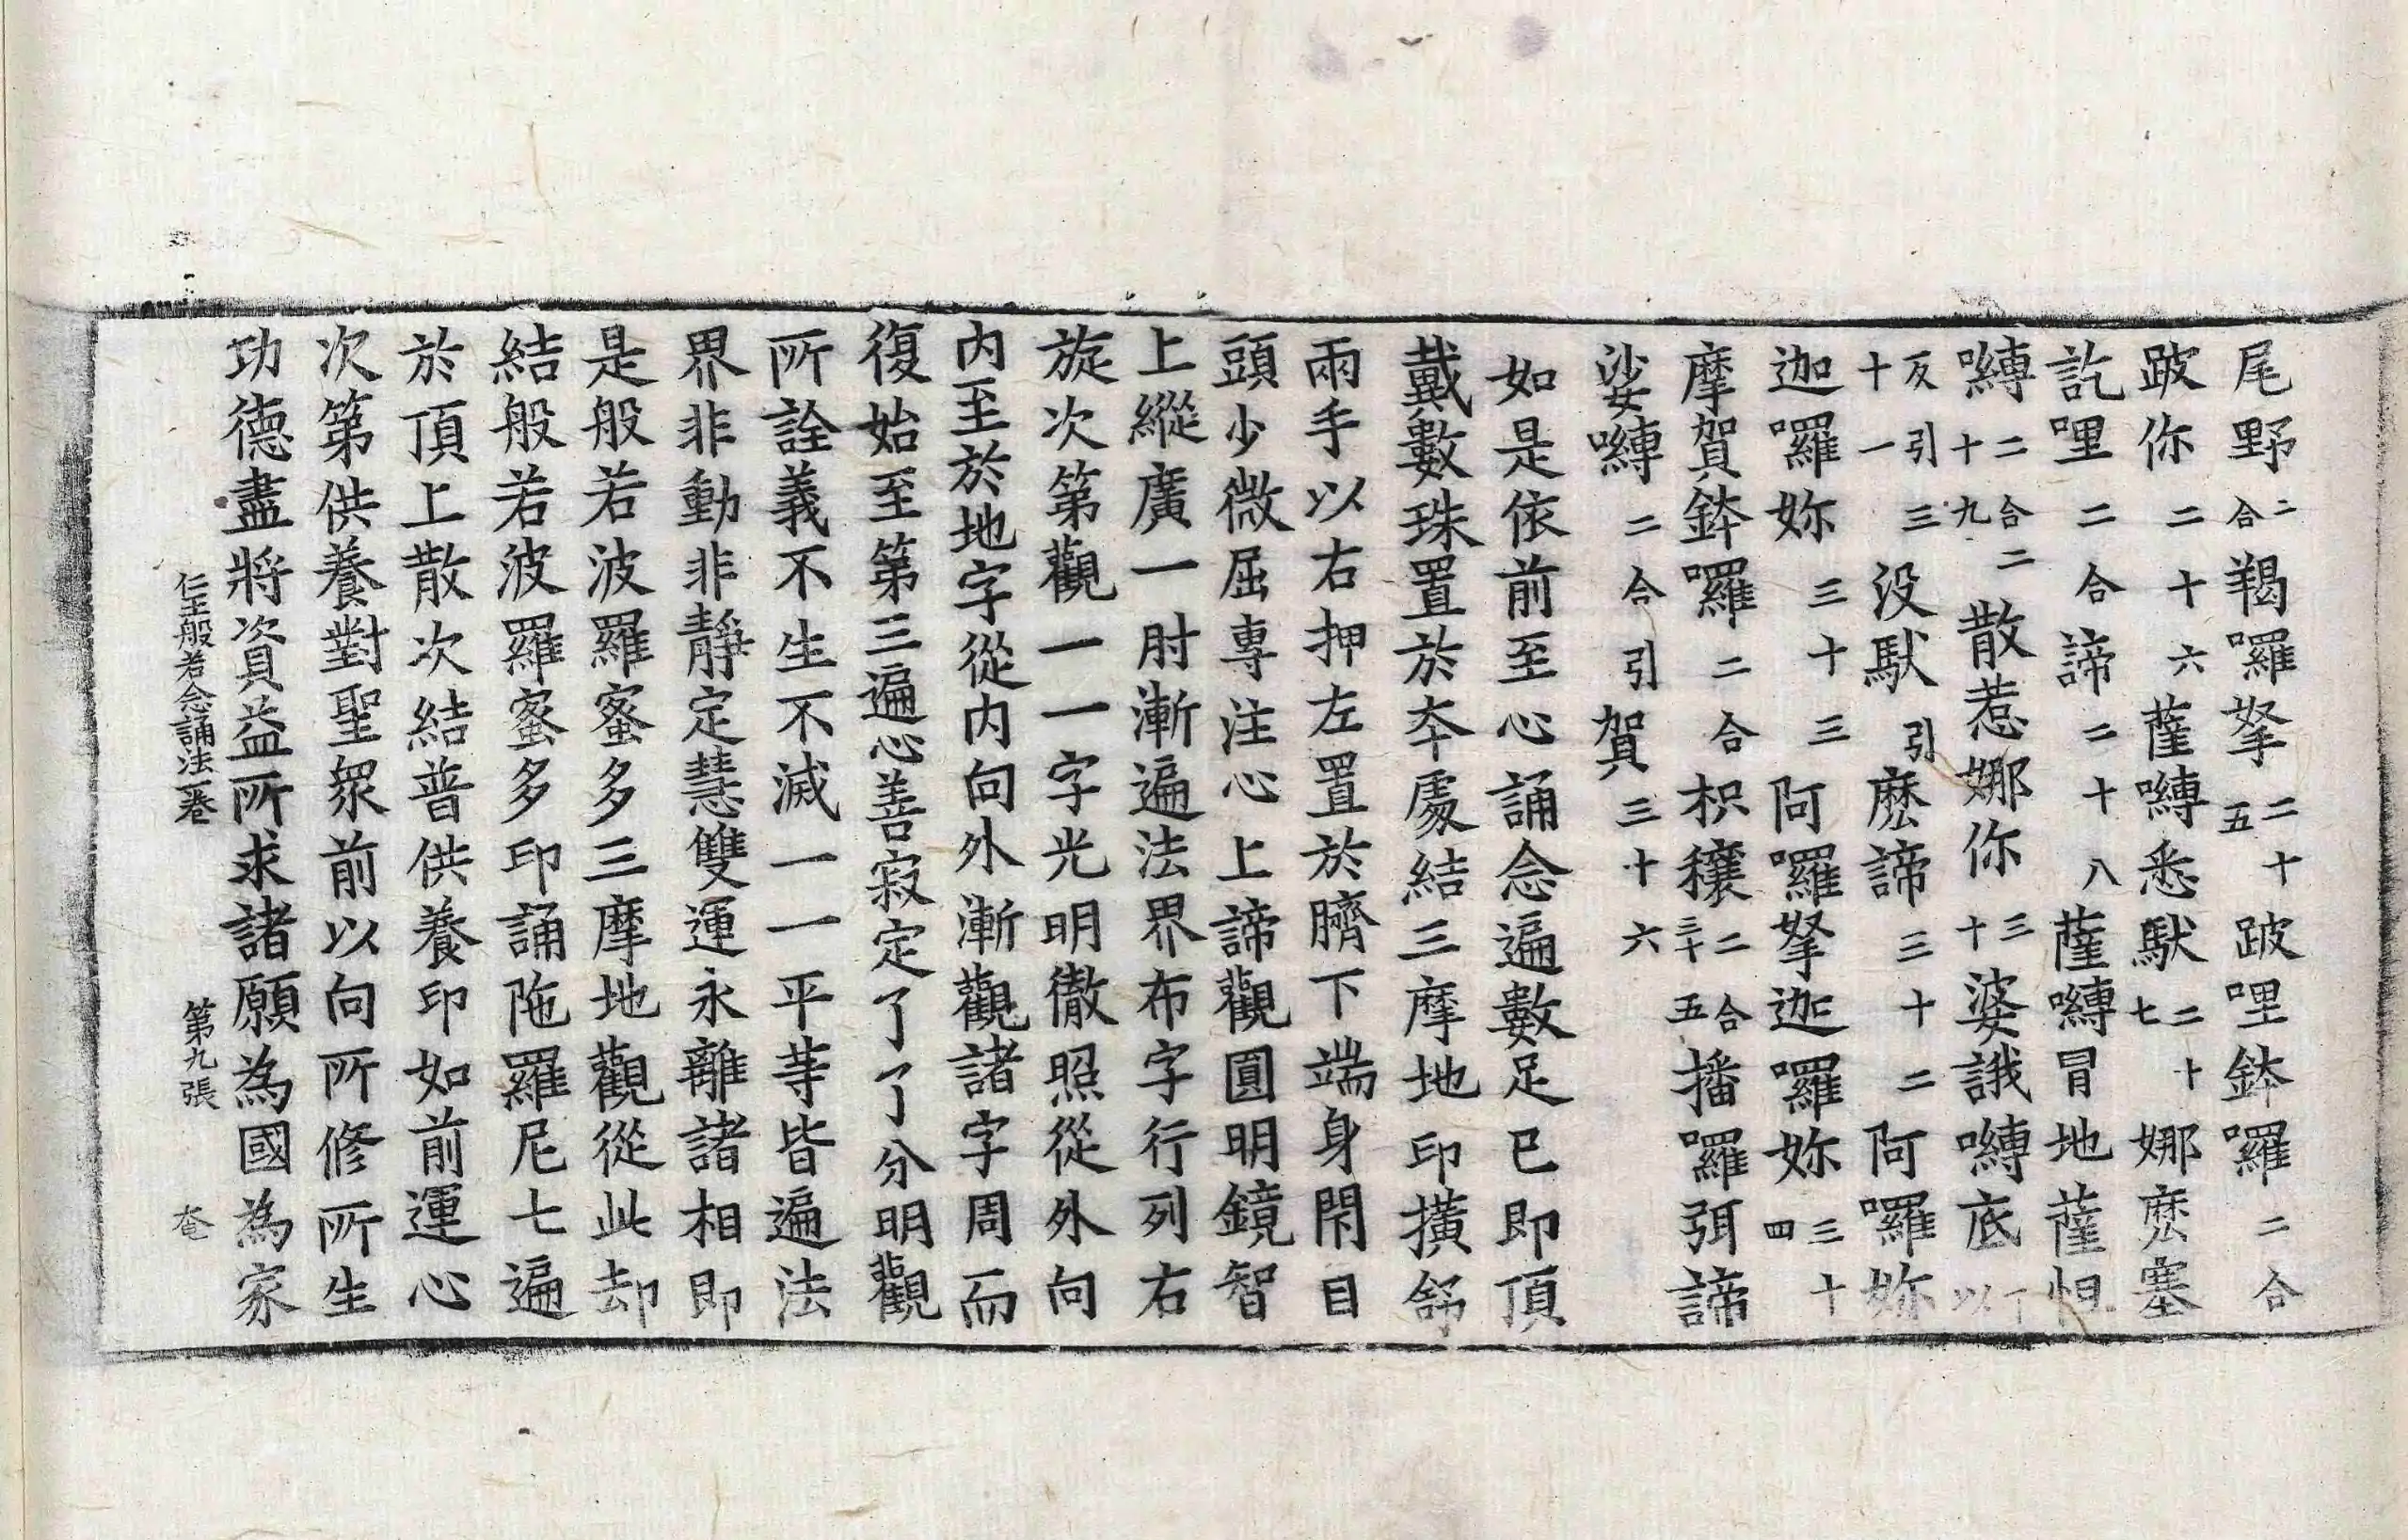 尾野二合羯囉拏二十五跛哩鉢囉二合
跛你二十六薩嚩悉馱二十七娜麽塞
訖哩二合諦二十八薩嚩冒地薩怛
嚩二合二十九散惹娜你三十婆誐嚩底丁以
反引三十一没馱引麽諦三十二阿囉妳
迦囉妳三十三阿囉拏迦囉妳三十四
摩賀鉢囉二合枳穰二合三十五播囉弭諦
娑嚩二合引賀三十六
如是依前至心誦念遍數足已即頂
戴數珠置於夲處結三摩地印擴舒
兩手以右押左置於臍下端身閇目
頭少微屈專注心上諦觀圓明鏡智
上縱廣一肘漸遍法界布字行列右
旋次第觀一一字光明徹照從外向
内至於地字從内向外漸觀諸字周而
復始至第三遍心善寂定了了分明觀
所詮義不生不滅一一平等皆遍法
界非動非靜定慧雙運永離諸相即
是般若波羅蜜多三摩地觀從此却
結般若波羅蜜多印誦陁羅尼七遍
於頂上散次結普供養印如前運心
次第供養對聖衆前以向所修所生
功德盡將資益所求諸願為國為家
仁王般若念誦法一卷 第九張